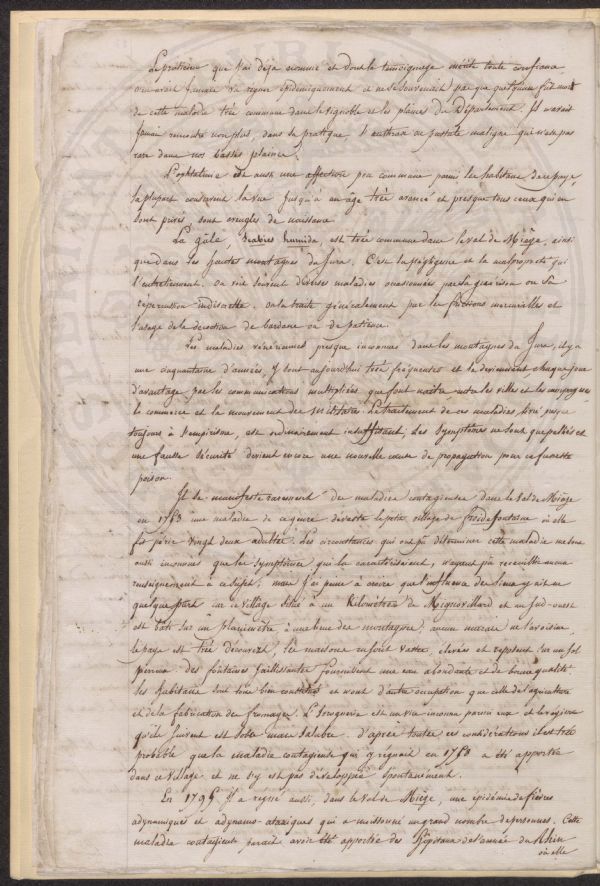 Le praticien que j'ai déja nommé et dont le témoignage mérite toute confiance
n'en avait jamais vu régner épidémiquement et ne se souvenait pas que quelqu'un fut mort
de cette maladie très commune dans le vignoble et les plaines du Département. Il n'avait
jamais rencontré non plus, dans sa pratique l'anthrax ou pustule maligne qui n'est pas
rare dans nos basses plaines.
L'ophtalmie est aussi une affection peu commune parmi les habitans de ce pays,
la plupart conservent la vue jusqu'à un âge très avancé et presque tous ceux qui en
sont privés, sont aveugles de naissance
La gâle, scabies humida, est très commune dans le val de Miège, ainsi
que dans les hautes montagnes du Jura. C'est la négligence et la malpropreté qui
l'entretiennent. On voit souvent diverses maladies occasionnées par sa guérison ou sa
répercussion indiscrette. On la traite généralement par les frictions mercurielles et
l'usage de la décoction de bardane ou de patience.
Les maladies vénériennes presque inconnues dans les montagnes du Jura, il y a
une cinquantaine d'années, y sont aujourd'hui très fréquentes et le deviennent chaque jour
d'avantage par les communications multipliées que font naitre entre les villes et les campagnes
le commerce et le mouvement des militaires. Le traitement de ces maladies, livré presque
toujours à l'empirisme, est ordinairement insuffisant, les symptômes ne sont que palliés et
une fausse sécurité devient encore une nouvelle cause de propagation pour ce funeste
poison.
Il se manifeste rarement des maladies contagieuses dans le Val de Miège
en 1763 une maladie de ce genre dévasta le petit village de froidefontaine où elle
fit périr vingt deux adultes. Les circonstances qui ont pu déterminer cette maladie me sont
aussi inconnues que les symptômes qui la caractérisaient, n'ayant pu recueillir aucun
renseignement à ce sujet; mais j'ai peine à croire que l'influence du climat y ait eu
quelque part car ce village situé à un kilomètre de Mignovillard et au sud-ouest
est bâti sur un plan à une lieue des montagnes, aucun marais ne l'avoisine
le pays est très découvert, les maisons en sont vastes, élevées et reposent sur un sol
pierreux des fontaines jaillissantes fournissent une eau abondante et de bonne qualité
les habitans sont tous bien constitués et n'ont d'autre occupation que celle de l'agriculture
et de la fabrication des fromages. L'ivrognerie est un vice inconnu parmi eux et le régime
qu'ils suivent est sobre mais salubre. D'après toutes ces considérations il est très
probable que la maladie contagieuse qui y régnait en 1763 a été apportée
dans ce village et ne s'y est pas développée spontanément.
En 1795 il a régné aussi, dans le val de Miège, une épidémie de fièvres
adynamiques et adynamo-ataxiques qui a moissonné un grand nombre de personnes. Cette
maladie contagieuse parait avoir été apportée des hôpitaux de l'armée du Rhin
où elle